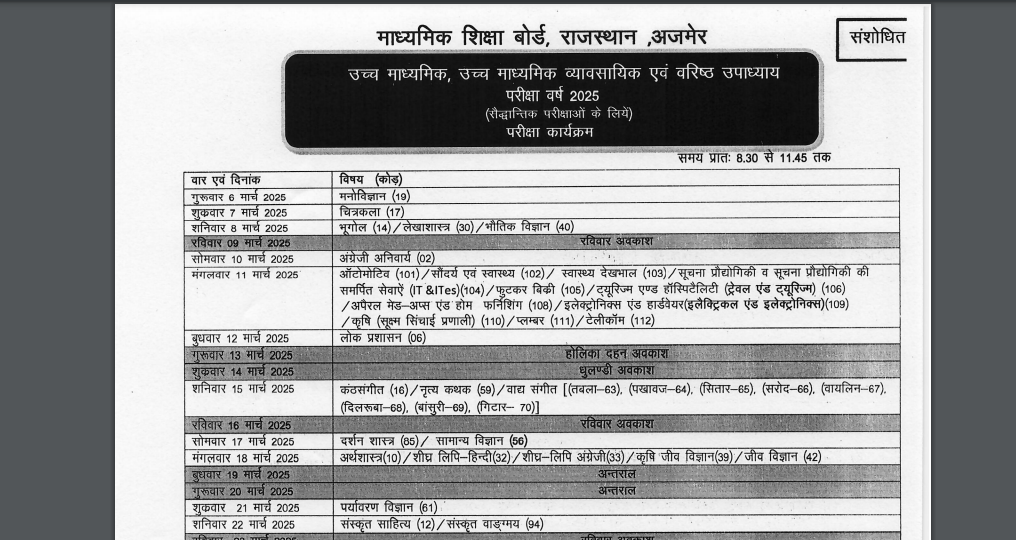 माध्यमिक शिक्षा बोर्ड, राजस्थान ,अजमेर
संशोधित
उच्च माध्यमिक, उच्च माध्यमिक व्यावसायिक एवं वरिष्ठ उपाध्याय
परीक्षा वर्ष 2025
(सैद्धान्तिक परीक्षाओं के लियें)
परीक्षा कार्यक्रम
समय प्रातः 8.30 से 11.45 तक
वार एवं दिनांक विषय (कोड़)
गुरूवार 6 मार्च 2025 मनोविज्ञान (19)
शुकवार 7 मार्च 2025 चित्रकला (17)
शनिवार 8 मार्च 2025 भूगोल (14)/लेखाशास्त्र (30)/भौतिक विज्ञान (40)
रविवार 09 मार्च 2025 रविवार अवकाश
सोमवार 10 मार्च 2025 अंग्रेजी अनिवार्य (02)
मंगलवार 11 मार्च 2025 ऑटोमोटिव (101)/सौंदर्य एवं स्वास्थ्य (102)/ स्वास्थ्य देखभाल (103)/सूचना प्रौद्योगिकी व सूचना प्रौद्योगिकी की
समर्पित सेवाऐं (IT &ITes)(104)/फुटकर बिकी (105)/टयूरिज्म एण्ड हॉस्पिटैलिटी (ट्रेवल एंड टयूरिज्म) (106)
/अपैरल मेड–अप्स एंड होम फर्निशिंग (108)/इलेक्ट्रोनिक्स एंड हार्डवेयर(इलैक्ट्रिकल एंड इलेक्ट्रोनिक्स)(109)
/कृषि (सूक्ष्म सिंचाई प्रणाली) (110)/प्लम्बर (111)/टेलीकॉम (112)
बुधवार 12 मार्च 2025 लोक प्रशासन (06)
गुरूवार 13 मार्च 2025 होलिका दहन अवकाश
शुकवार 14 मार्च 2025 धुलण्डी अवकाश
शनिवार 15 मार्च 2025 कंठसंगीत (16)/नृत्य कथक (59)/वाद्य संगीत [(तबला–63), (पखावज–64), (सितार–65), (सरोद–66), (वायलिन–67),
(दिलरूबा–68), (बांसुरी–69), (गिटार– 70)]
रविवार 16 मार्च 2025 रविवार अवकाश
सोमवार 17 मार्च 2025 दर्शन शास्त्र (85)/ सामान्य विज्ञान (56)
मंगलवार 18 मार्च 2025 अर्थशास्त्र(10)/शीघ्र लिपि–हिन्दी(32)/शीघ्र–लिपि अंग्रेजी(33)/कृषि जीव विज्ञान(39)/जीव विज्ञान (42)
बुधवार 19 मार्च 2025 अन्तराल
गुरूवार 20 मार्च 2025 अन्तराल
शुकवार 21 मार्च 2025 पर्यावरण विज्ञान (61)
शनिवार 22 मार्च 2025 संस्कृत साहित्य (12)/संस्कृत वाङ्गमय (94)